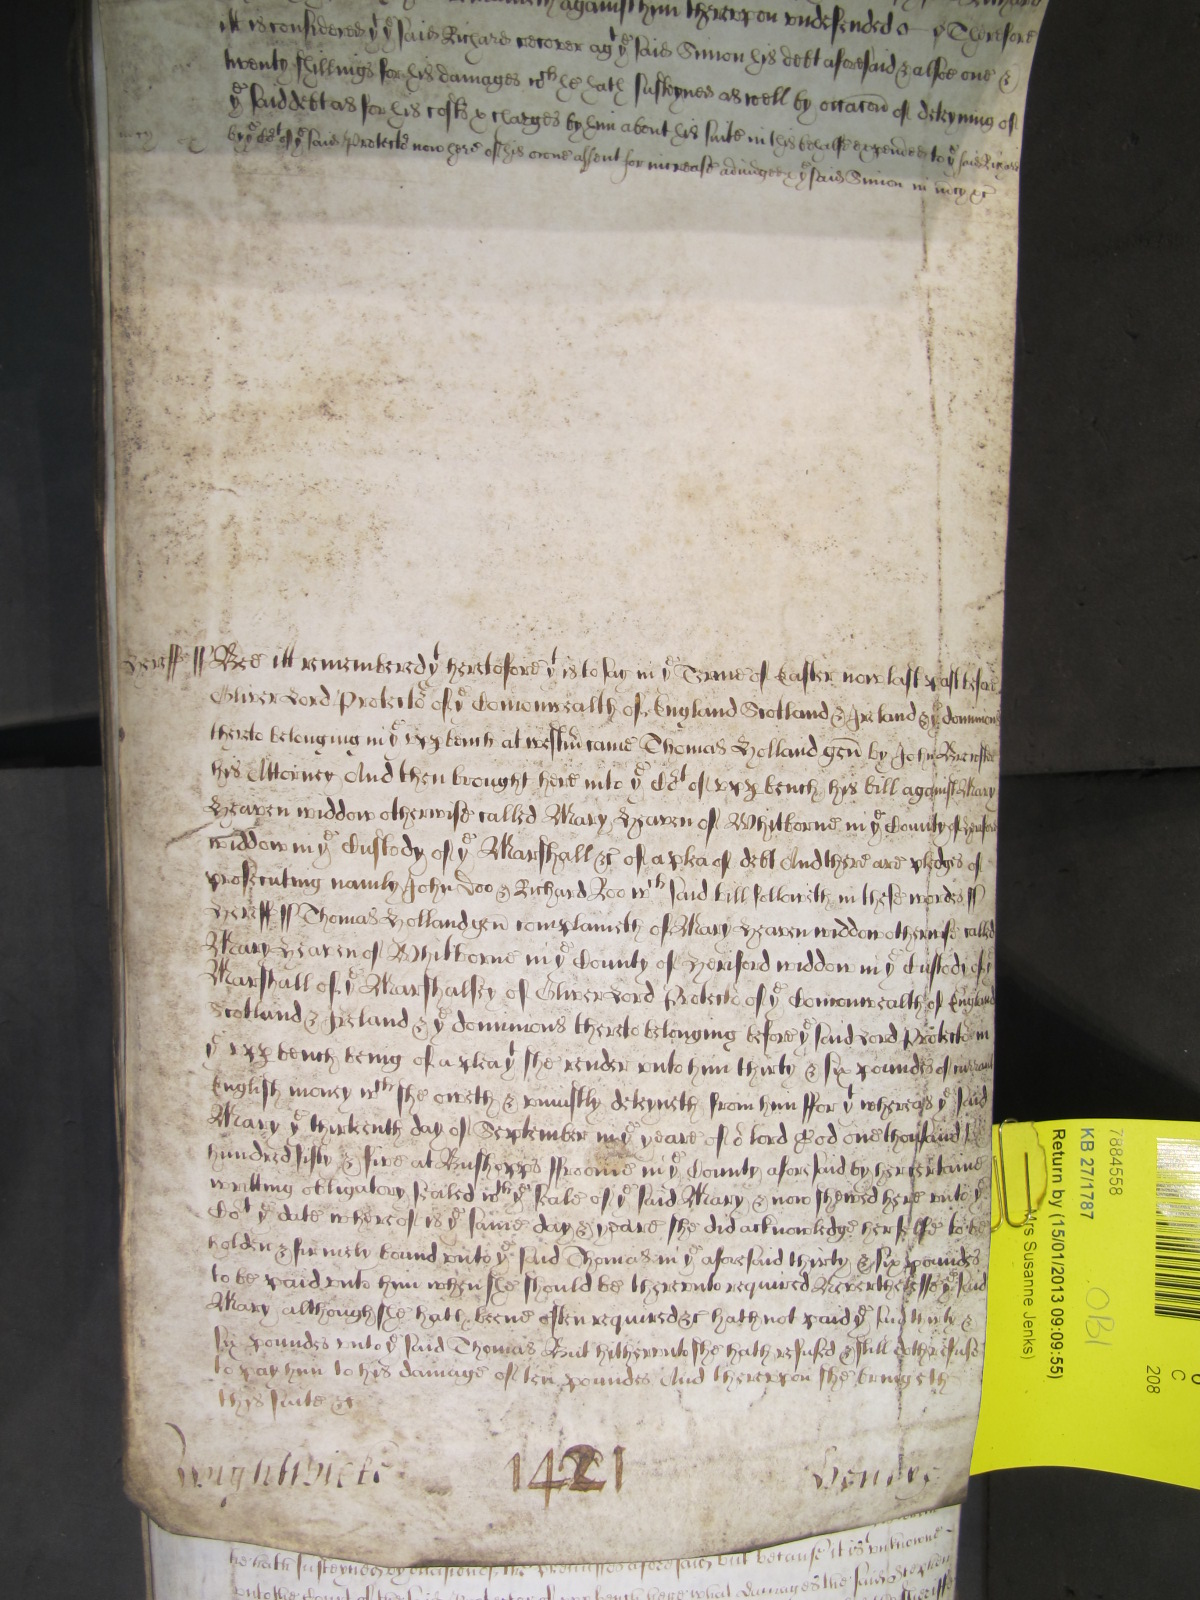 against him thereupon undefended Therefore
itt is considered yt ye said Richard recover agt ye said Simon his debt aforesaid & alsoe one &
twenty shillings for his damages wch he hath susteyned as well by occacon of deteyning of
ye said debt as for his costs & charges by him about his suite in this behalfe expended to ye said Richard
by ye Cot of ye said Protector now here of his owne assent for increase adiudged & ye said Simon in mcy &c
Hereff ss Bee itt remembered yt heretofore yt is to say in ye Terme of Easter now last past before
Oliver Lord Protector of ye Comonwealth of England Scotland & Ireland & ye dominions
thereto belonging in ye upp bench at westm came Thomas Holland gen by John
his Attorney And then brought here into ye Cot of upp bench his bill against Mary
Heaven widdow otherwise called Mary Heaven of Whitborne in ye County of Hereford
widdow in ye Custody of ye Marshall &c of a plea of debt And there are pledges of
prosecuting namly John Doo & Richard Roo wch said bill followeth in these wordes ss
Hereff ss Thomas Holland gen complaineth of Mary Heaven widdow otherwise called
Mary Heaven of Whitborne in ye County of Hereford widdow in ye Custody of ye
Marshall of ye Marshalsey of Oliver Lord Protector of ye Comonwealth of England
Scotland & Ireland & ye dominions thereto belonging before ye said Lord Protector in
ye upp bench being of a plea yt she render unto him thirty & six poundes of currant
English money wch she oweth & uniustly deteyneth from him ffor yt whereas ye said
Mary ye thirteenth day of September in ye yeare of or lord God one thousand six
hundred fifty & five at Bushopps ffroome in ye County aforesaid by her certaine
writting obligatory sealed wth ye seale of ye said Mary & now shewed here unto ye
Cot ye date whereof is ye same day & yeare she did acknowledge herselfe to be
holden & firmely bound unto ye said Thomas in ye aforesaid thirty & six poundes
to be paid unto him when she should be thereunto required Neverthelesse ye said
Mary although she hath beene often required &c hath not paid ye said thirty &
six poundes unto ye said Thomas But hitherunto she hath refused & still doth refuse
to pay him to his damage of ten poundes And thereupon she bringeth
this suite &c
1421
he hath susteyned by occasion of the premisses aforesaid but because it is unknowne
unto the Court of the said Protector of upp bench here what damages the said Stephen
7884558
KB 27/1787
Return by (15/01/2013 09:09:55)
Mrs Susanne Jenks)
OBI
C
208